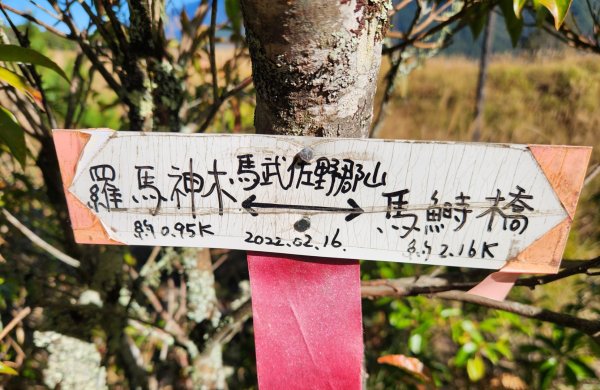 馬武佐野郡山
羅馬神木 ←→ 馬鰣橋
約0.95K 2022.02.16. 約2.16K